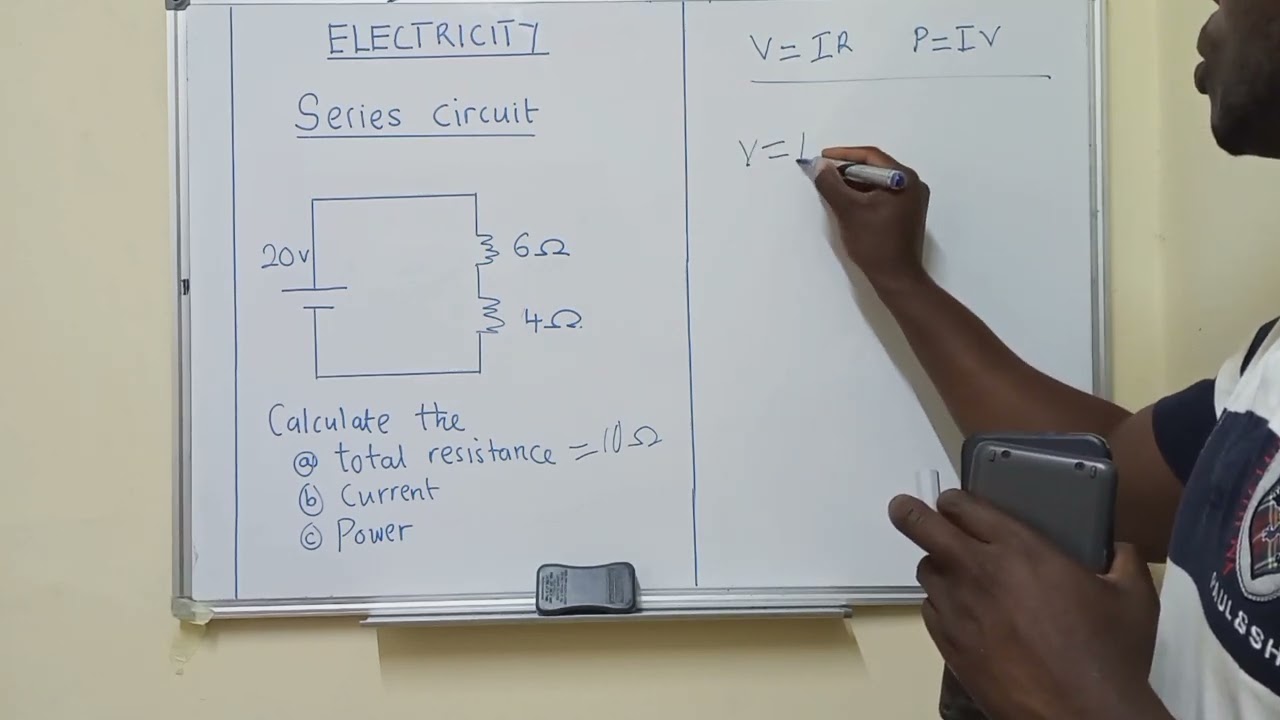 ELECTRICITY
Series circuit
20v
6Ω
4Ω
Calculate the
ⓐ total resistance = 10Ω
ⓑ Current
ⓒ Power
V = IR P = IV
V = I
PAUL&SH